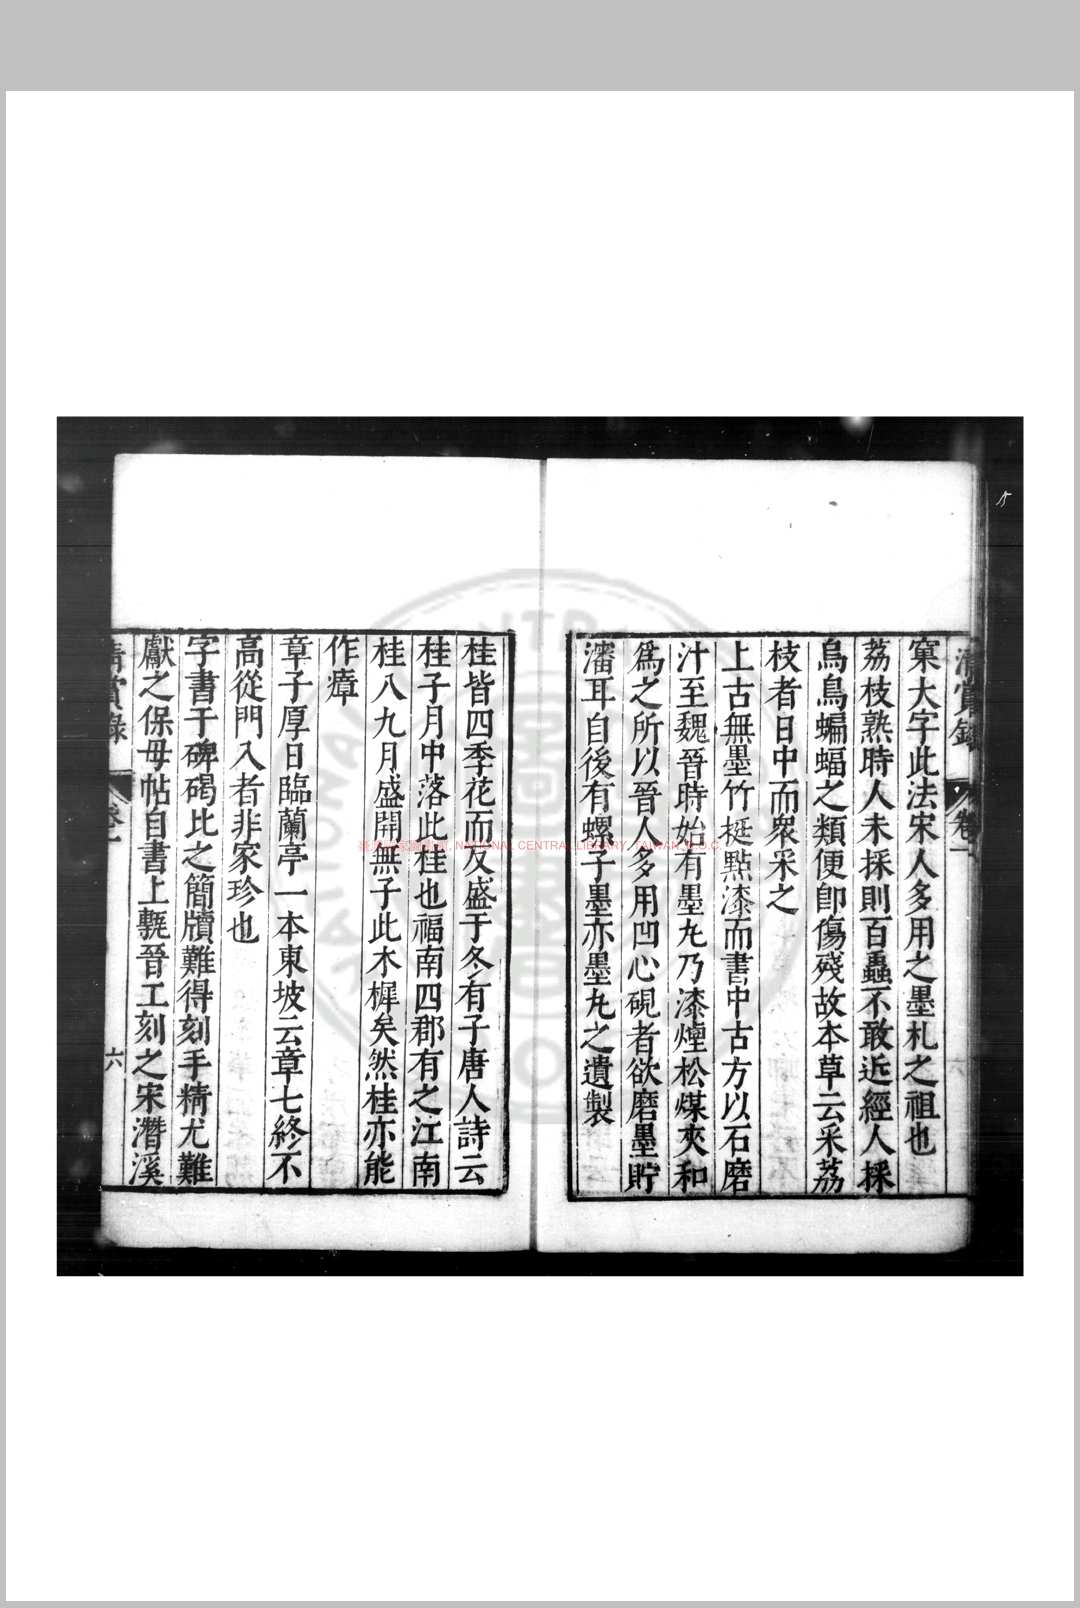 清賞錄
卷一
窠大字此法宋人多用之墨札之祖也
荔枝熟時人未採則百蟲不敢近經人採
烏鳥蝙蝠之類便卽傷殘故本草云采荔
枝者日中而衆采之
上古無墨竹梃點漆而書中古方以石磨
汁至魏晉時始有墨丸乃漆煙松煤夾和
爲之所以晉人多用凹心硯者欲磨墨貯
瀋耳自後有螺子墨亦墨丸之遺製
桂皆四季花而反盛于冬有子唐人詩云
桂子月中落此桂也福南四郡有之江南
桂八九月盛開無子此木樨矣然桂亦能
作瘴
章子厚日臨蘭亭一本東坡云章七終不
高從門入者非家珍也
字書于碑碣比之簡牘難得刻手精尤難
獻之保母帖自書上甎晉工刻之宋潛溪
清賞錄
卷一
六
NATIONAL CENTRAL LIBRARY, TAIWAN, R.O.C.